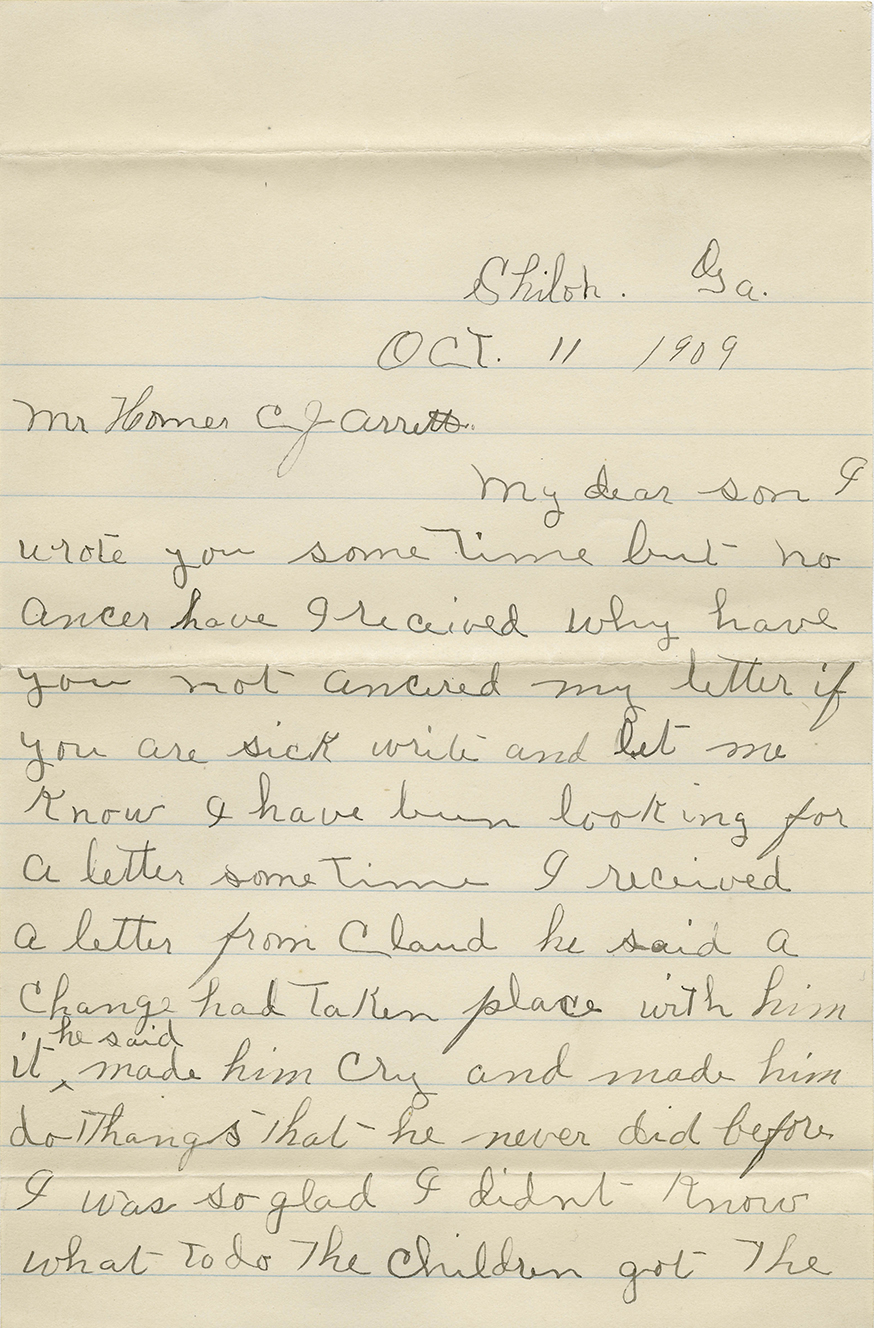 Shiloh. Ga.
OCT. 11 1909
Mr Homer C Jarrett.
My dear son I
wrote you some Time but no
ancer have I received why have
you not ancered my letter if
you are sick write and let me
know I have bun looking for
a letter some Time I received
a letter from Claud he said a
Change had Taken place with him
he said
it ^ made him Cry and made him
do Thangs That he never did before
I was so glad I didnt Know
what To do The Children got The